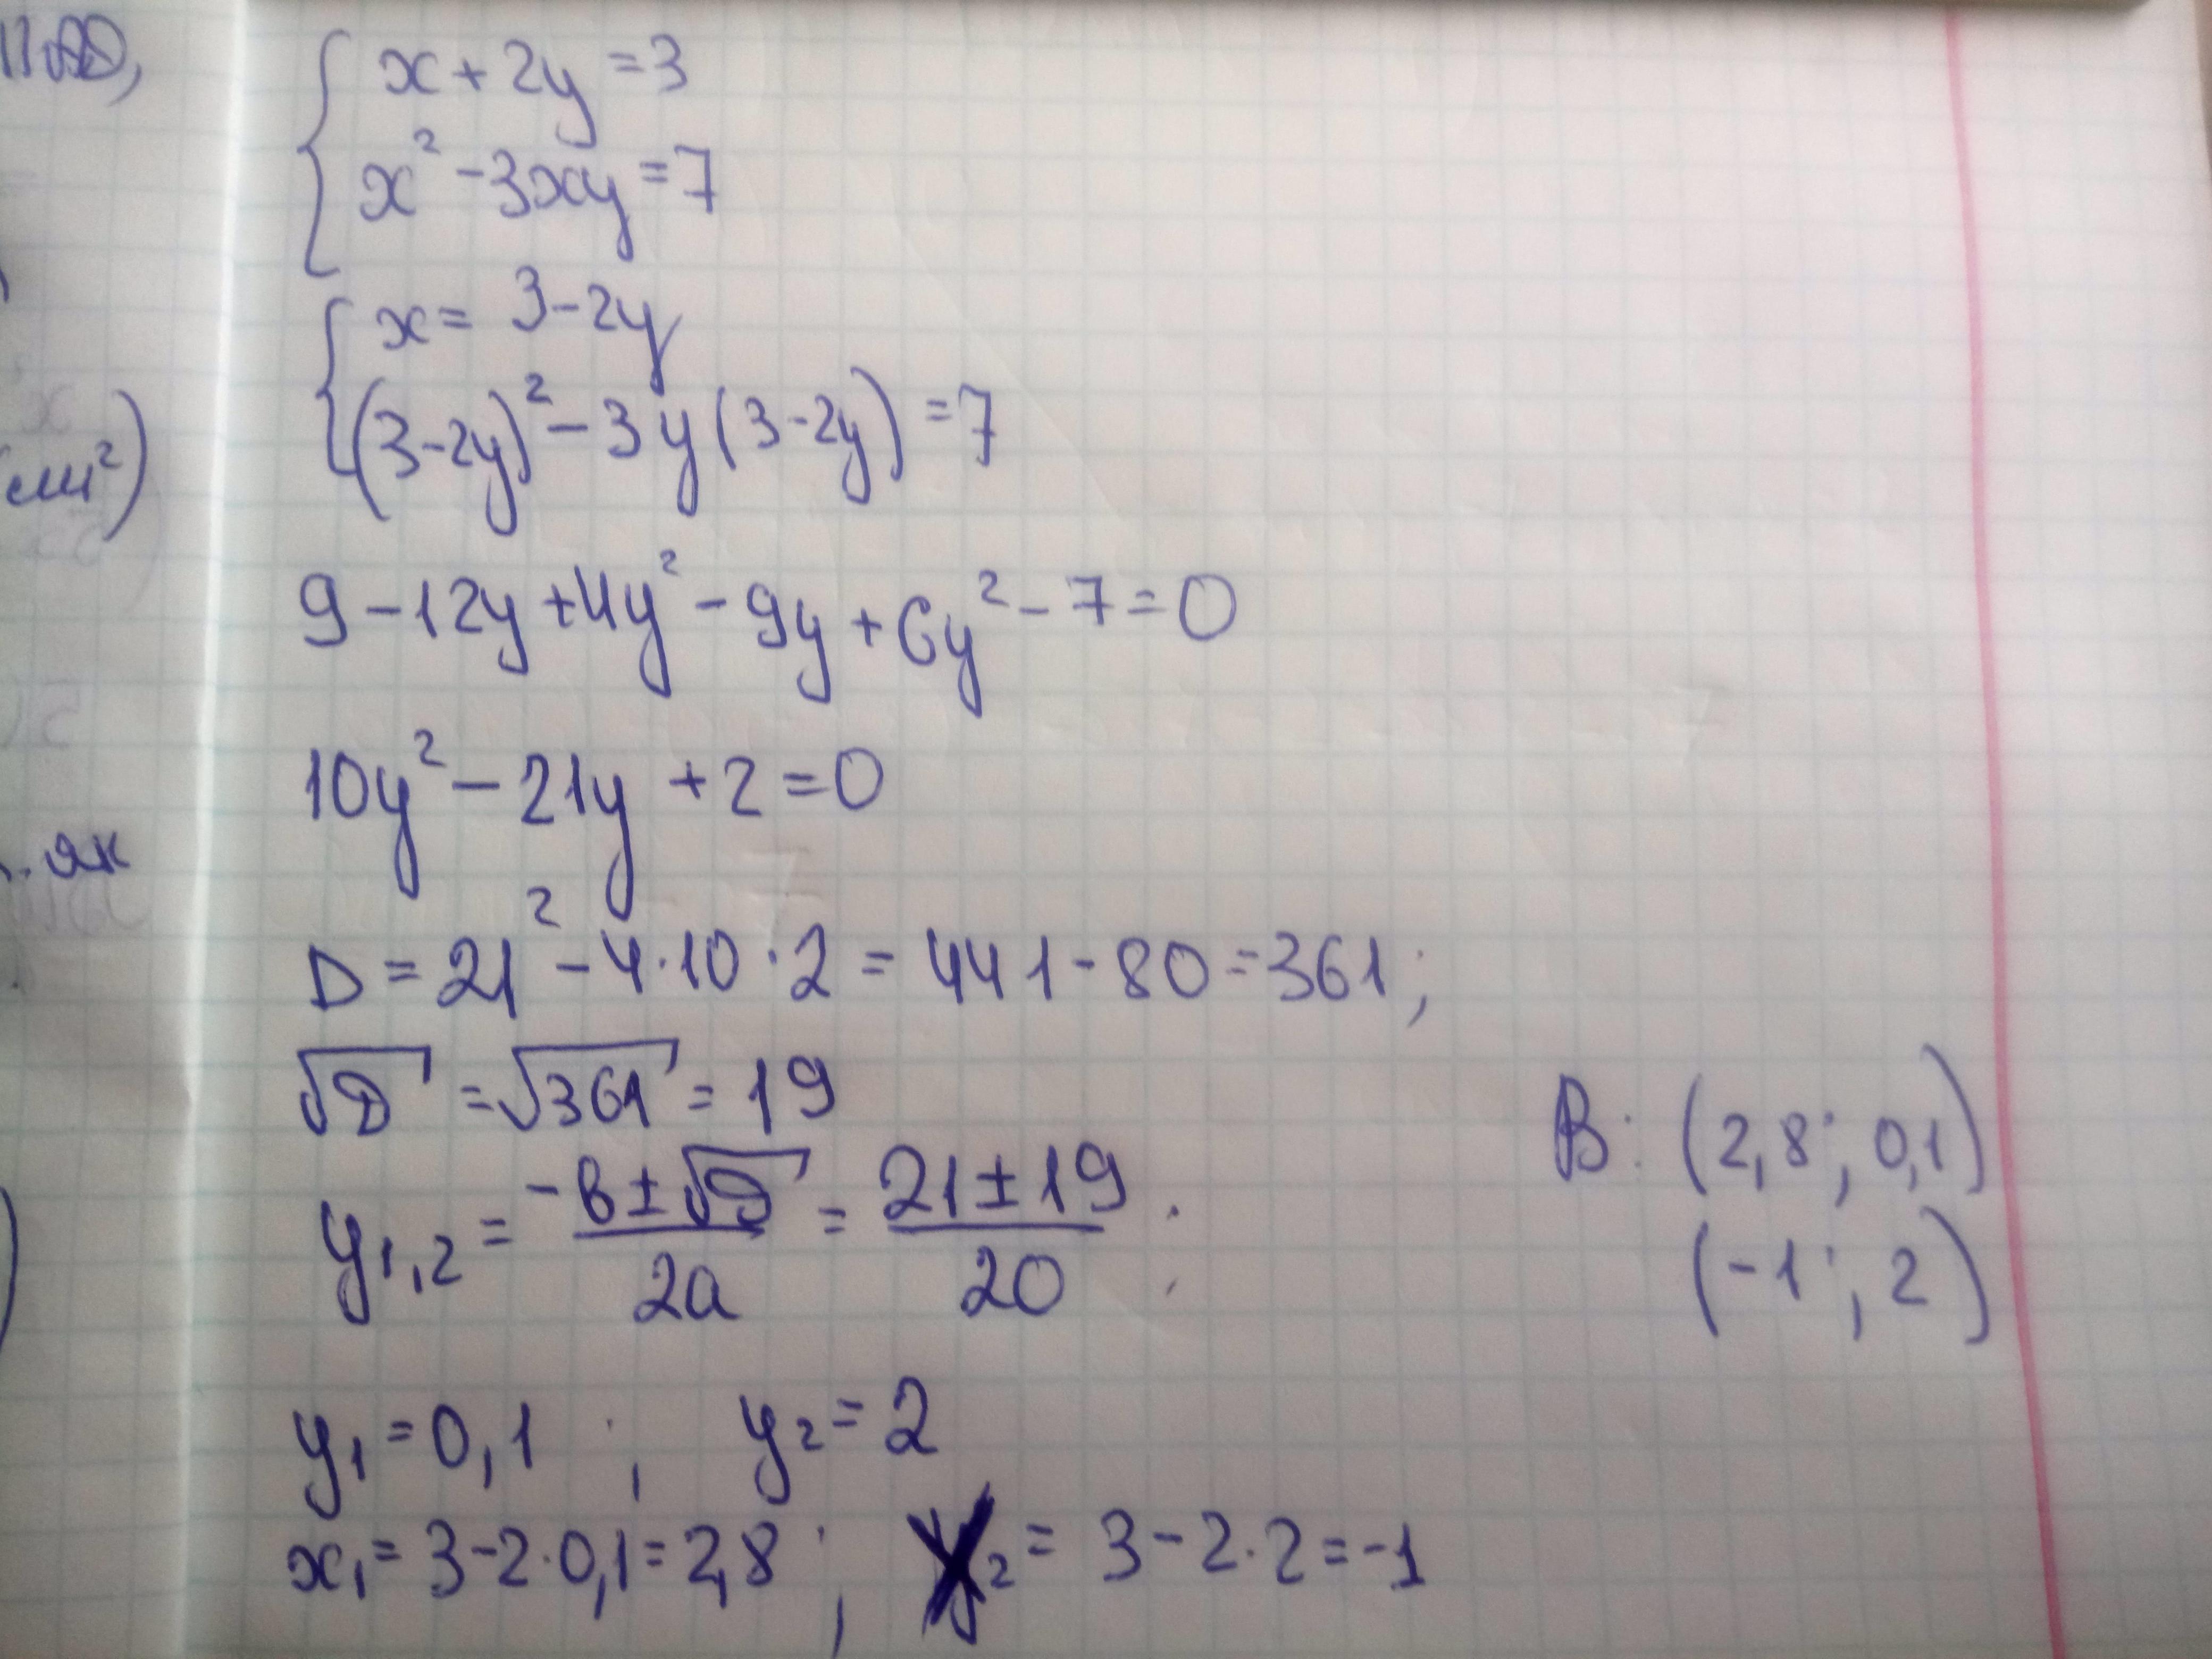 x + 2y = 3
x² - 3xy = 7
x = 3 - 2y
(3 - 2y)² - 3y(3 - 2y) = 7
9 - 12y + 4y² - 9y + 6y² - 7 = 0
10y² - 21y + 2 = 0
D = 21² - 4·10·2 = 441 - 80 = 361;
√D = √361 = 19
y₁,₂ = (-b ± √D)/(2a) = (21 ± 19)/20;
y₁ = 0,1 ; y₂ = 2
x₁ = 3 - 2·0,1 = 2,8 ; x₂ = 3 - 2·2 = -1
В: (2,8 ; 0,1)
(-1 ; 2)
см²)
як